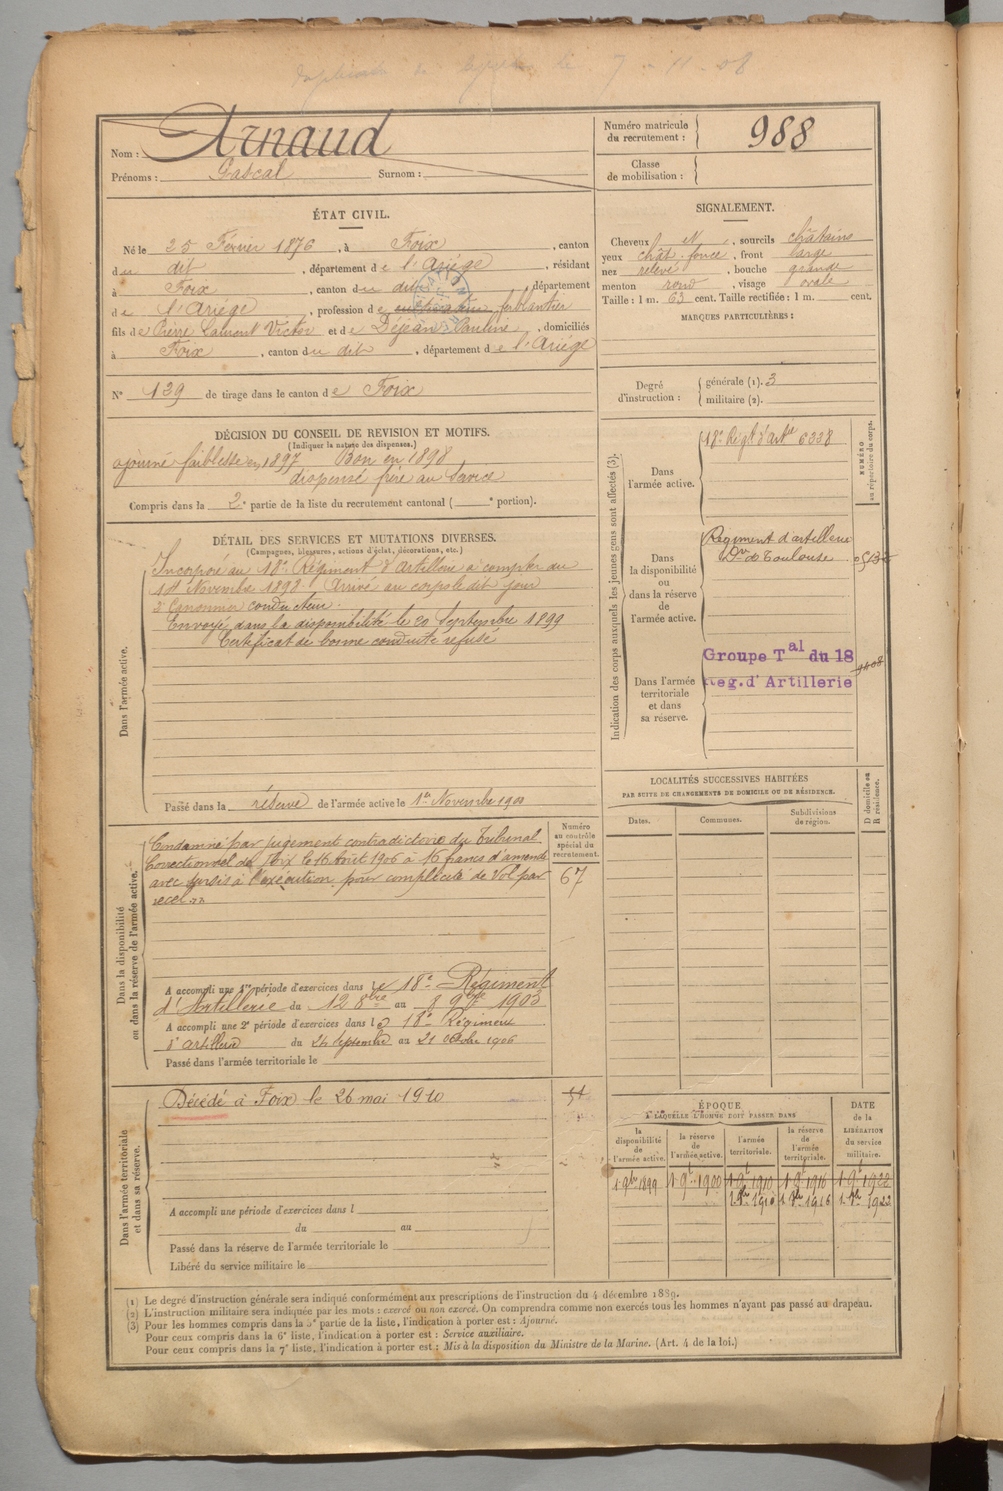 7 - 11 - 08
Nom : Arnaud
Prénoms : Pascal Surnom :
Numéro matricule du recrutement : 988
Classe de mobilisation :
ÉTAT CIVIL.
Né le 25 Février 1876, à Foix, canton
du dit, département de l'Ariége, résidant
à Foix, canton du dit, département
de l'Ariége, profession de cultivateur ferblantier
fils de Pierre Laurent Victor et de Déjean Pauline, domiciliés
à Foix, canton du dit, département de l'Ariége
N° 139 de tirage dans le canton de Foix
SIGNALEMENT.
Cheveux et, sourcils châtains
yeux chât. foncé, front large
nez relevé, bouche grande
menton rond, visage ovale
Taille : 1 m. 63 cent. Taille rectifiée : 1 m. cent.
MARQUES PARTICULIÈRES :
Degré d'instruction : générale (1). 3
militaire (2).
DÉCISION DU CONSEIL DE REVISION ET MOTIFS.
(Indiquer la nature des dispenses.)
ajourné faiblesse en 1897 Bon en 1898
dispensé frère au service
Compris dans la 2e partie de la liste du recrutement cantonal ( e portion).
DÉTAIL DES SERVICES ET MUTATIONS DIVERSES.
(Campagnes, blessures, actions d'éclat, décorations, etc.)
Dans l'armée active.
Incorporé au 18e Régiment d'artillerie à compter du
14 Novembre 1898. Arrivé au corps le dit jour
2e Canonnier conducteur.
Envoyé dans la disponibilité le 20 Septembre 1899
Certificat de bonne conduite refusé
Passé dans la réserve de l'armée active le 1er Novembre 1900
Indication des corps auxquels les jeunes gens sont affectés (3).
NUMÉRO au répertoire du corps.
Dans l'armée active.
18e Régt d'artie 6338
Dans la disponibilité ou dans la réserve de l'armée active.
Régiment d'artillerie
Don de Toulouse
Dans l'armée territoriale et dans sa réserve.
Groupe Tal du 18
Reg. d'Artillerie
LOCALITÉS SUCCESSIVES HABITÉES
PAR SUITE DE CHANGEMENTS DE DOMICILE OU DE RÉSIDENCE.
Dates. Communes. Subdivisions de région. D domicile ou R résidence.
Dans la disponibilité ou dans la réserve de l'armée active.
Numéro au contrôle spécial du recrutement.
67
Condamné par jugement contradictoire du Tribunal
Correctionnel de Foix le 16 Août 1906 à 16 francs d'amende
avec sursis à l'exécution pour complicité de Vol par
recel
A accompli une 1re période d'exercices dans le 18e Régiment
d'Artillerie du 12 8bre au 8 9bre 1903
A accompli une 2e période d'exercices dans le 18e Régiment
d'artillerie du 24 septembre au 21 octobre 1906
Passé dans l'armée territoriale le
Dans l'armée territoriale et dans sa réserve.
Décédé à Foix le 26 mai 1910
A accompli une période d'exercices dans l
du au
Passé dans la réserve de l'armée territoriale le
Libéré du service militaire le
ÉPOQUE
A LAQUELLE L'HOMME DOIT PASSER DANS
DATE de la LIBÉRATION du service militaire.
la disponibilité de l'armée active. la réserve de l'armée active. l'armée territoriale. la réserve de l'armée territoriale.
1 9bre 1899 1 9t 1900 1 9t 1910 1 9t 1916 1 9t 1922
(1) Le degré d'instruction générale sera indiqué conformément aux prescriptions de l'instruction du 4 décembre 1889.
(2) L'instruction militaire sera indiquée par les mots : exercé ou non exercé. On comprendra comme non exercés tous les hommes n'ayant pas passé au drapeau.
(3) Pour les hommes compris dans la 5e partie de la liste, l'indication à porter est : Ajourné.
Pour ceux compris dans la 6e liste, l'indication à porter est : Service auxiliaire.
Pour ceux compris dans la 7e liste, l'indication à porter est : Mis à la disposition du Ministre de la Marine. (Art. 4 de la loi.)